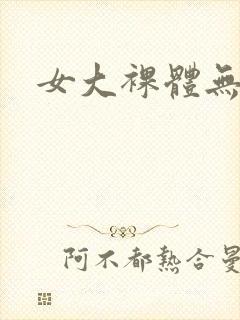 女大裸體無
阿不都熱合曼